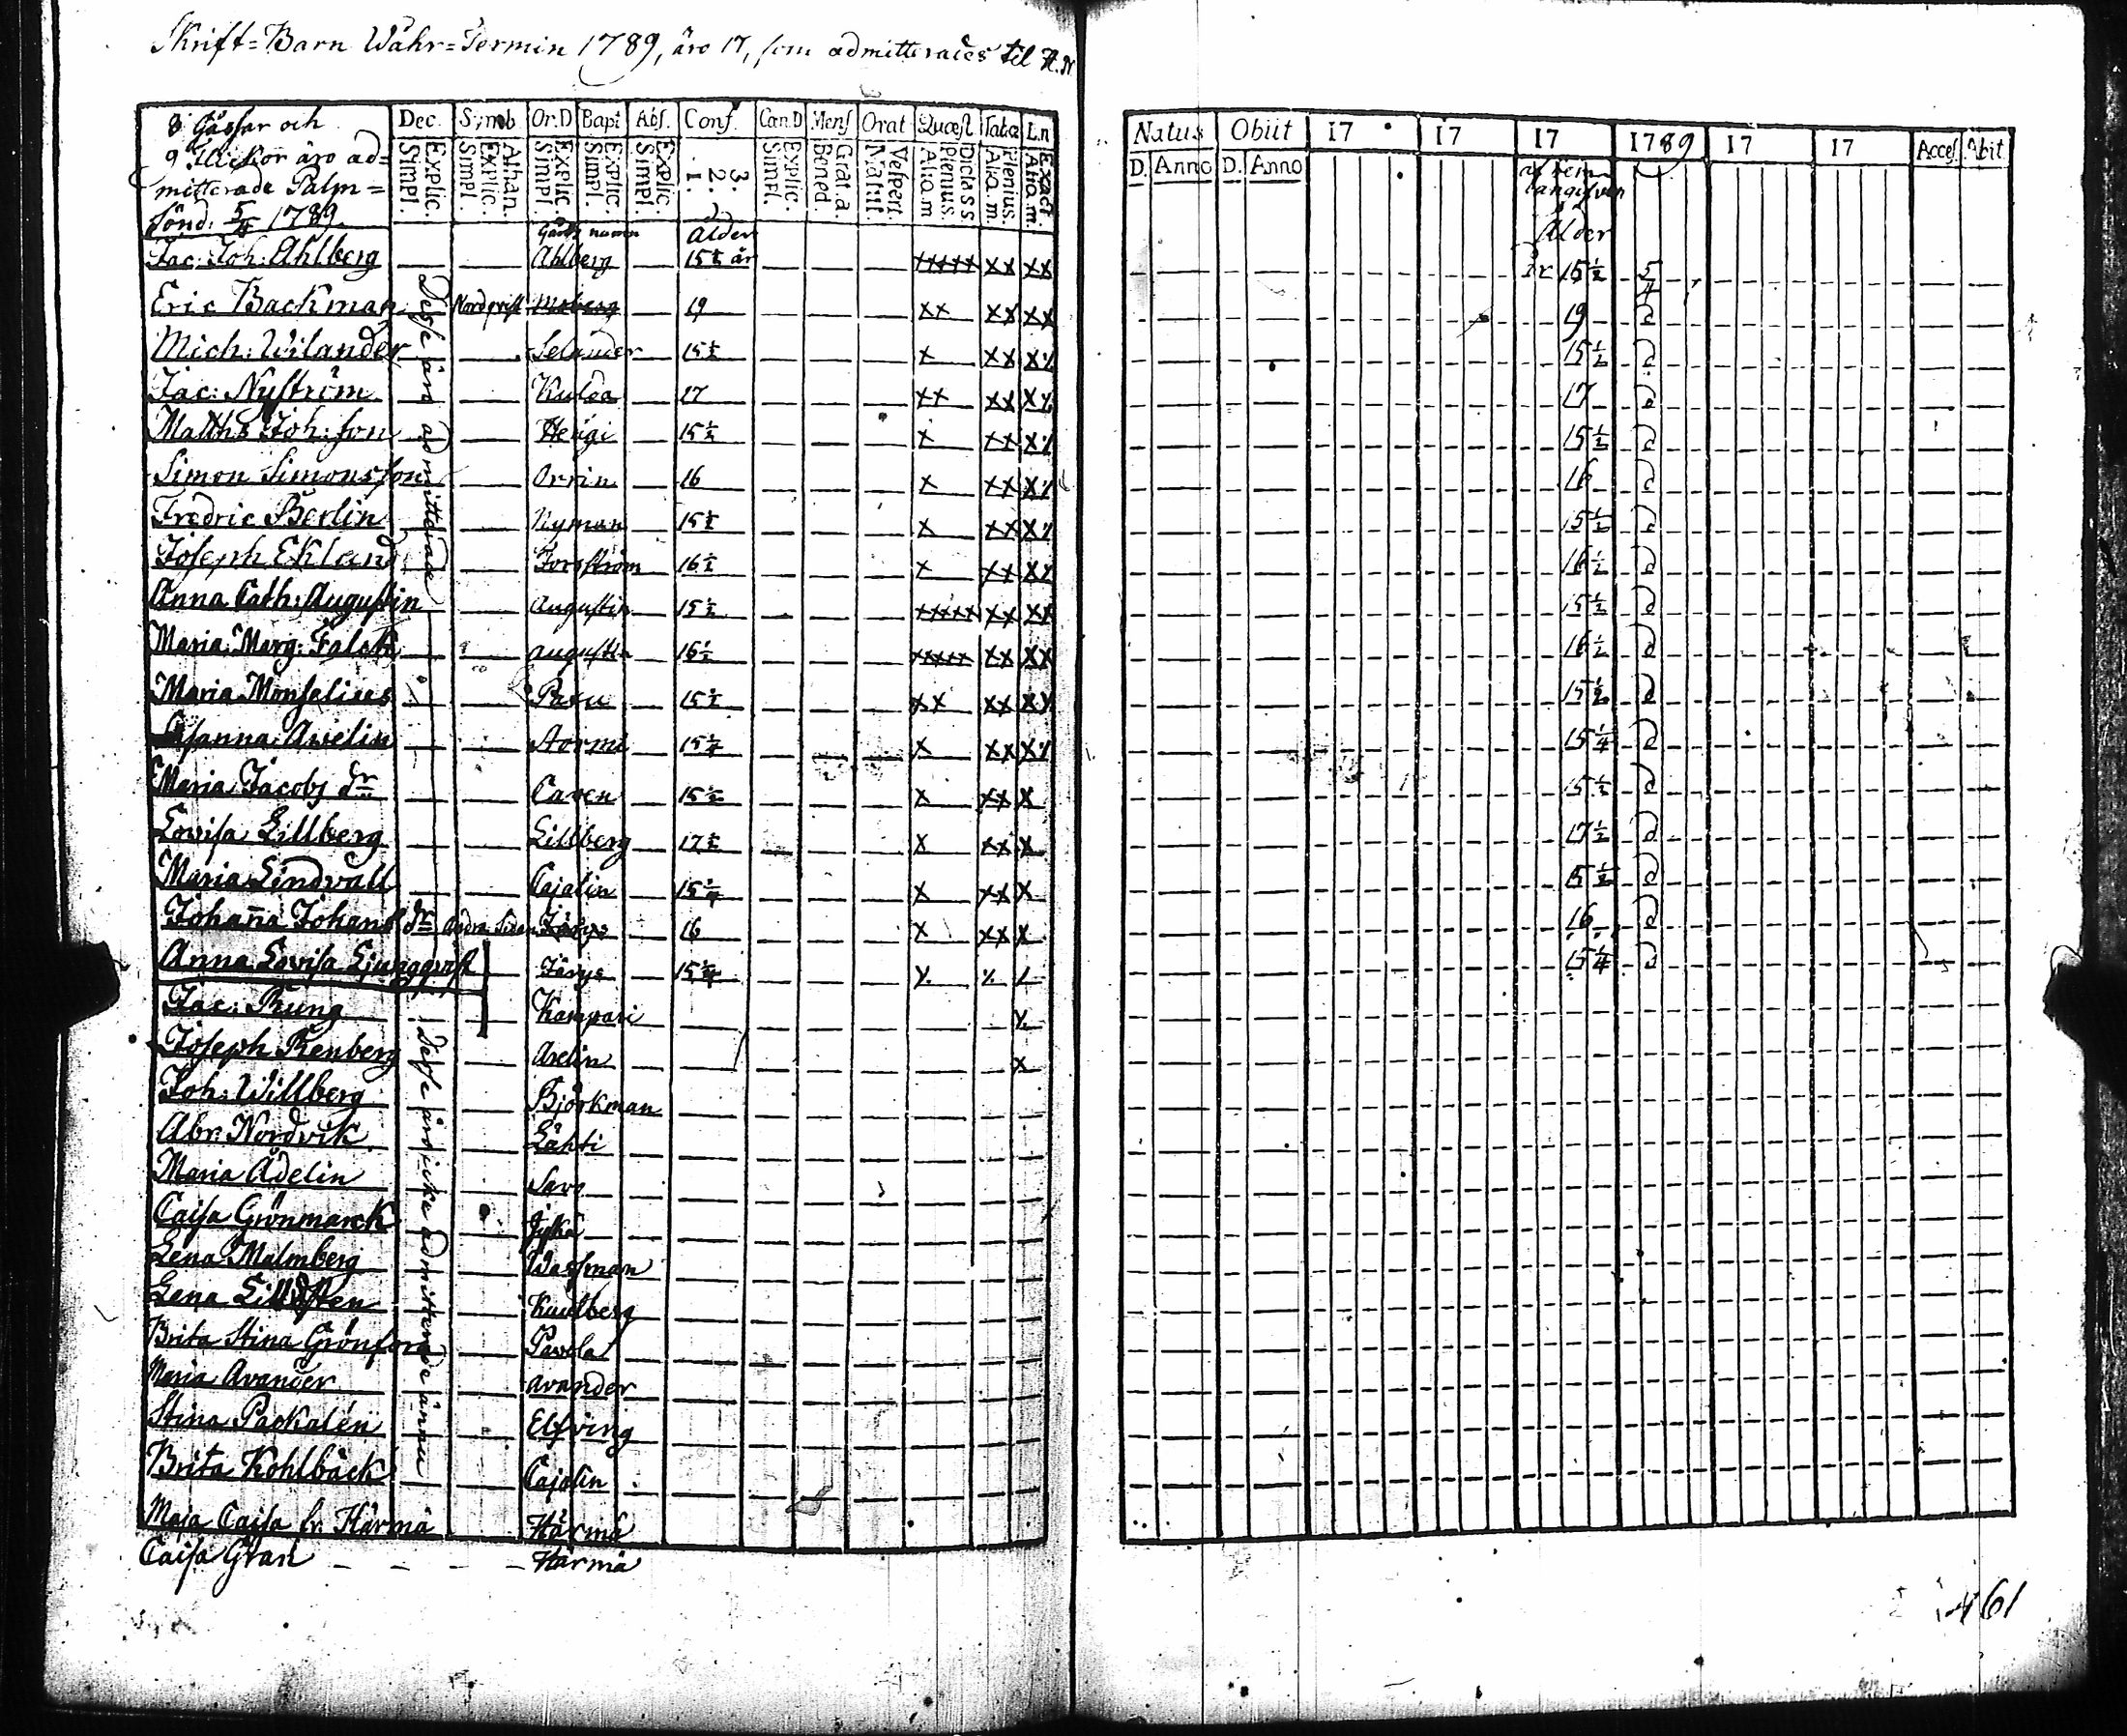 Skrift=Barn Wåhr=Termin 1789, äro 17, som admitterades til H. N
8 Gåssar och
9 Flickor äro ad=
mitterade Palm=
sönd: 5/4 1789.
Dec. Simb Or.D Bapt Abs. Conf. Cœn.D Mens Orat Quæst Taba L.n
Explic. Simpl. Athan. Explic. Simpl. Explic. Simpl. Explic. Simpl. Explic. Simpl. 3. 2. 1. Explic. Simpl. Grat. a. Bened. Vespert. Matut. Dicta S S. Plenius. Aliq. m Plenius. Aliq. m. Exact. Aliq. m.
Gårds namn Ålder
Jac: Joh: Ahlberg Ahlberg 15½ år xxxxx xx xx
Eric Backman Nordqvist 19 xx xx xx
Mich: Wilander Selander 15½ x xx xx
Jac: Nyström 17 xx xx xx
Matths Joh:son Heigi 15½ x xx xx
Simon Simonsson Orrin 16 x xx xx
Fredric Berlin Nyman 15½ x xx xx
Joseph Eklund Forsström 16½ x xx xx
Anna Cath: Augustin Augustin 15½ xxxxx xx xx
Maria Marg: Falck augustin 16½ xxxxx xx xx
Maria Monselius Pavu 15½ xx xx xx
Susanna Avelin Stormi 15¼ x xx xx
Maria Jacobs dr Caven 15½ x xx x
Lovisa Lillberg Lillberg 17½ x xx x
Maria Lindvall Cajalin x xx x
Johaña Johans dr andra sidan 16 x xx x
Anna Lovisa Ljungqvist Järys 15¼ x x /
Desse äro admitterade
Jac: Rung Kamppari x
Joseph Renberg Avelin x
Joh: Willberg Björkman
Abr: Nordvik Lähti
Maria Adelin Savo
Caisa Grönmarck Jyskä
Lena Malmberg Wassman
Lena Kuulberg
Brita Stina Grönfors Pavola
Maria Avander avander
Stina Paskalén Elfving
Brita Kohlbäck Cajalin
Maja Caisa fr. Härmä Härmä
Caisa Gran Härmä
Desse äro icke admitterade ännu
Natus Obiit 17 17 17 1789 17 17 Acces. Abit
D. Anno D. Anno
af dem
angifven
Ålder
är 15½ 5/4
19 d
15½ d
17 d
15½ d
16 d
15½ d
16½ d
15½ d
16½ d
15½ d
15¼ d
15½ d
17½ d
15½ d
16 d
15¼ d
461